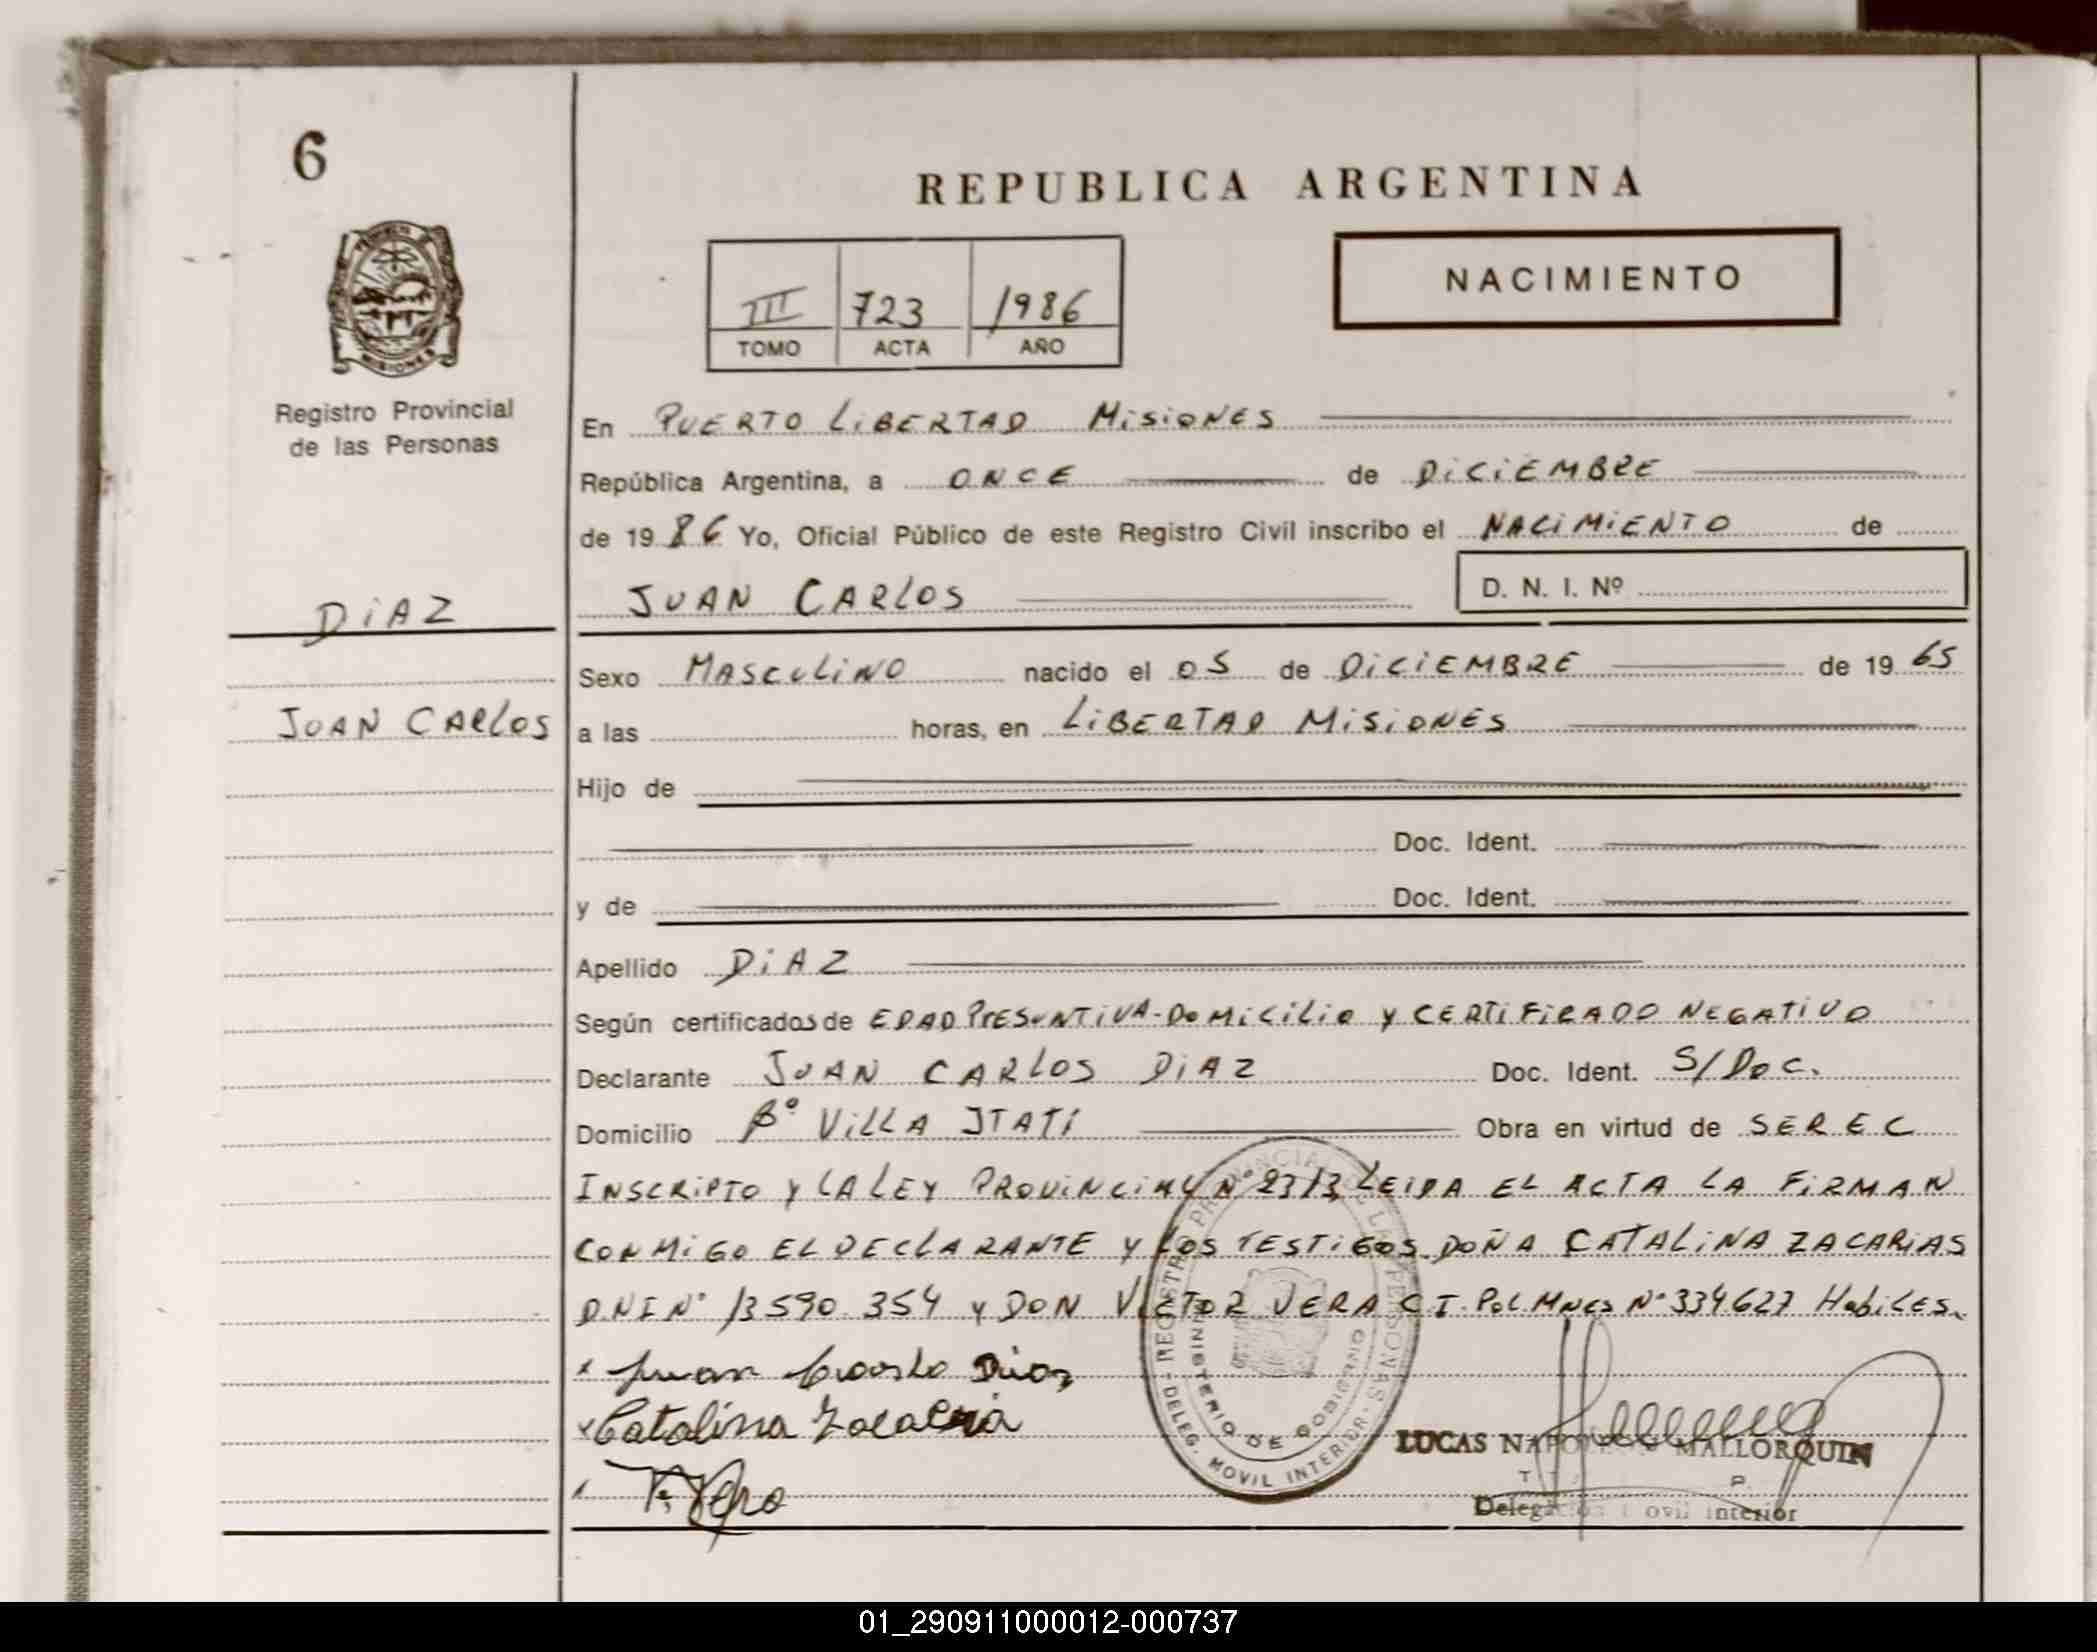 6
REPUBLICA ARGENTINA
NACIMIENTO
III 723 1986
TOMO ACTA AÑO
MISIONES
Registro Provincial
de las Personas
En PUERTO LIBERTAD MISIONES
República Argentina, a ONCE de DICIEMBRE
de 19 86 Yo, Oficial Público de este Registro Civil inscribo el NACIMIENTO de
JUAN CARLOS D. N. I. Nº
DIAZ
Sexo MASCULINO nacido el 05 de DICIEMBRE de 19 65
JUAN CARLOS
a las horas, en LIBERTAD MISIONES
Hijo de
Doc. Ident.
y de Doc. Ident.
Apellido DIAZ
Según certificados de EDAD PRESUNTIVA-DOMICILIO Y CERTIFICADO NEGATIVO
Declarante JUAN CARLOS DIAZ Doc. Ident. S/DOC.
Domicilio Bº VILLA ITATI Obra en virtud de SEREC
INSCRIPTO Y LA LEY PROVINCIAL Nº 2313 LEIDA EL ACTA LA FIRMAN
CONMIGO EL DECLARANTE Y LOS TESTIGOS DOÑA CATALINA ZACARIAS
D.N.I Nº 13590.354 Y DON VICTOR VERA C.I. POL MNES Nº 334627 HabiLES.
x Juan Diaz
x Catalina Zacaria
REGISTRO PROVINCIAL DE LAS PERSONAS
MINISTERIO DE GOBIERNO
DELEG. MOVIL INTERIOR
LUCAS NAPOLEON MALLORQUIN
Delegación Movil Interior
01_290911000012-000737